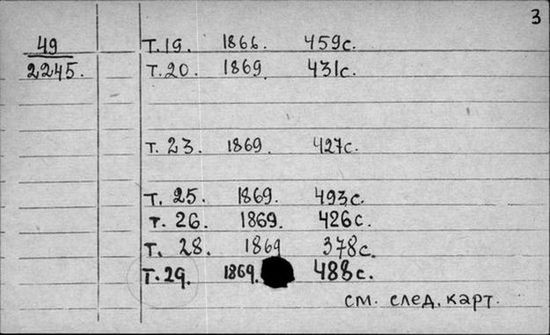 3
49
2245.
т.19. 1866. 459с.
т.20. 1869. 431с.
т. 23. 1869. 427с.
т. 25. 1869. 493с.
т. 26. 1869. 426с.
т. 28. 1869 378с.
т.29. 1869. 488с.
см. след. карт.